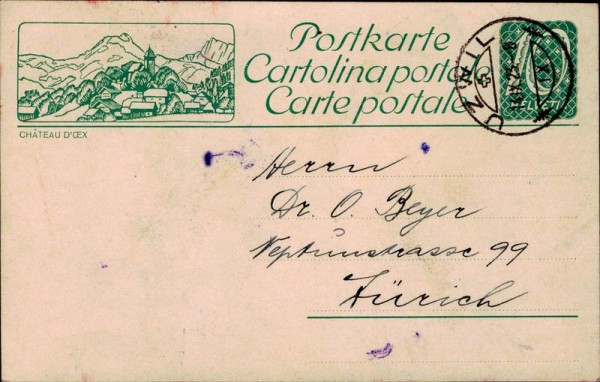 Postkarte
Cartolina posta
Carte postale
UZWIL
CHÂTEAU D'ŒX
Herrn
Dr. O. Beyer
Neptunstrasse 99
Zürich